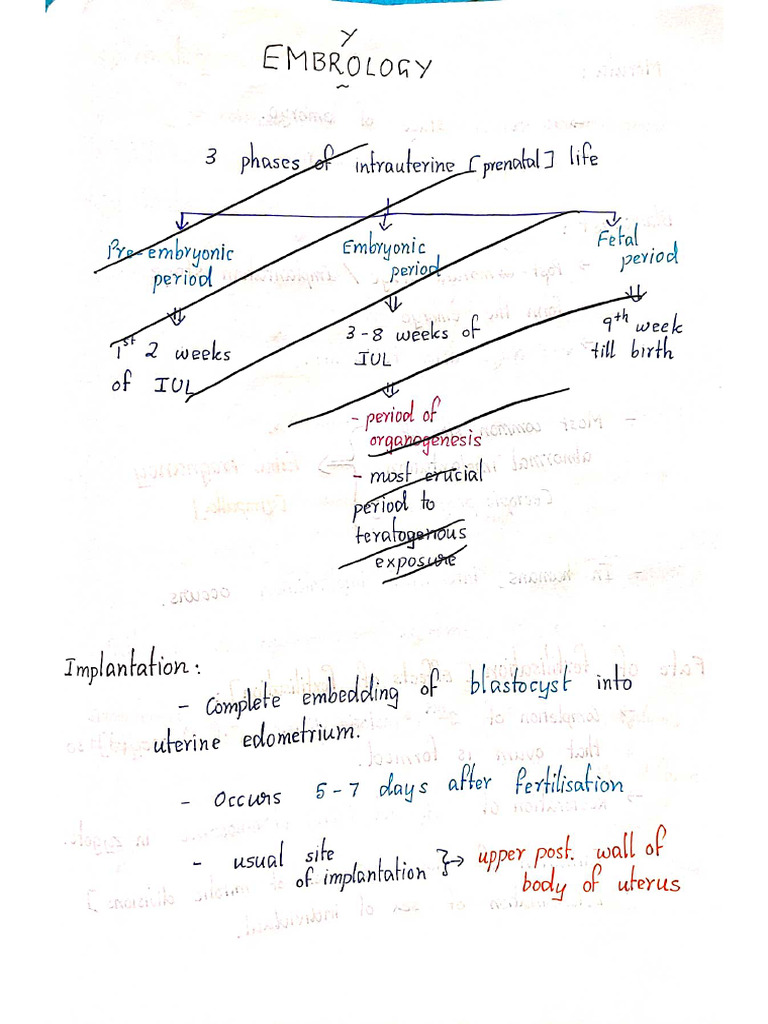 Y
EMBROLOGY
3 phases of intrauterine [prenatal] life
Pre-embryonic period
Embryonic period
Fetal period
1st 2 weeks of IUL
3-8 weeks of IUL
9th week till birth
- period of
organogenesis
- most crucial
period to
teratogenous
exposure
Implantation:
- Complete embedding of blastocyst into
uterine edometrium.
- Occurs 5-7 days after fertilisation
- usual site
of implantation } → upper post. wall of
body of uterus